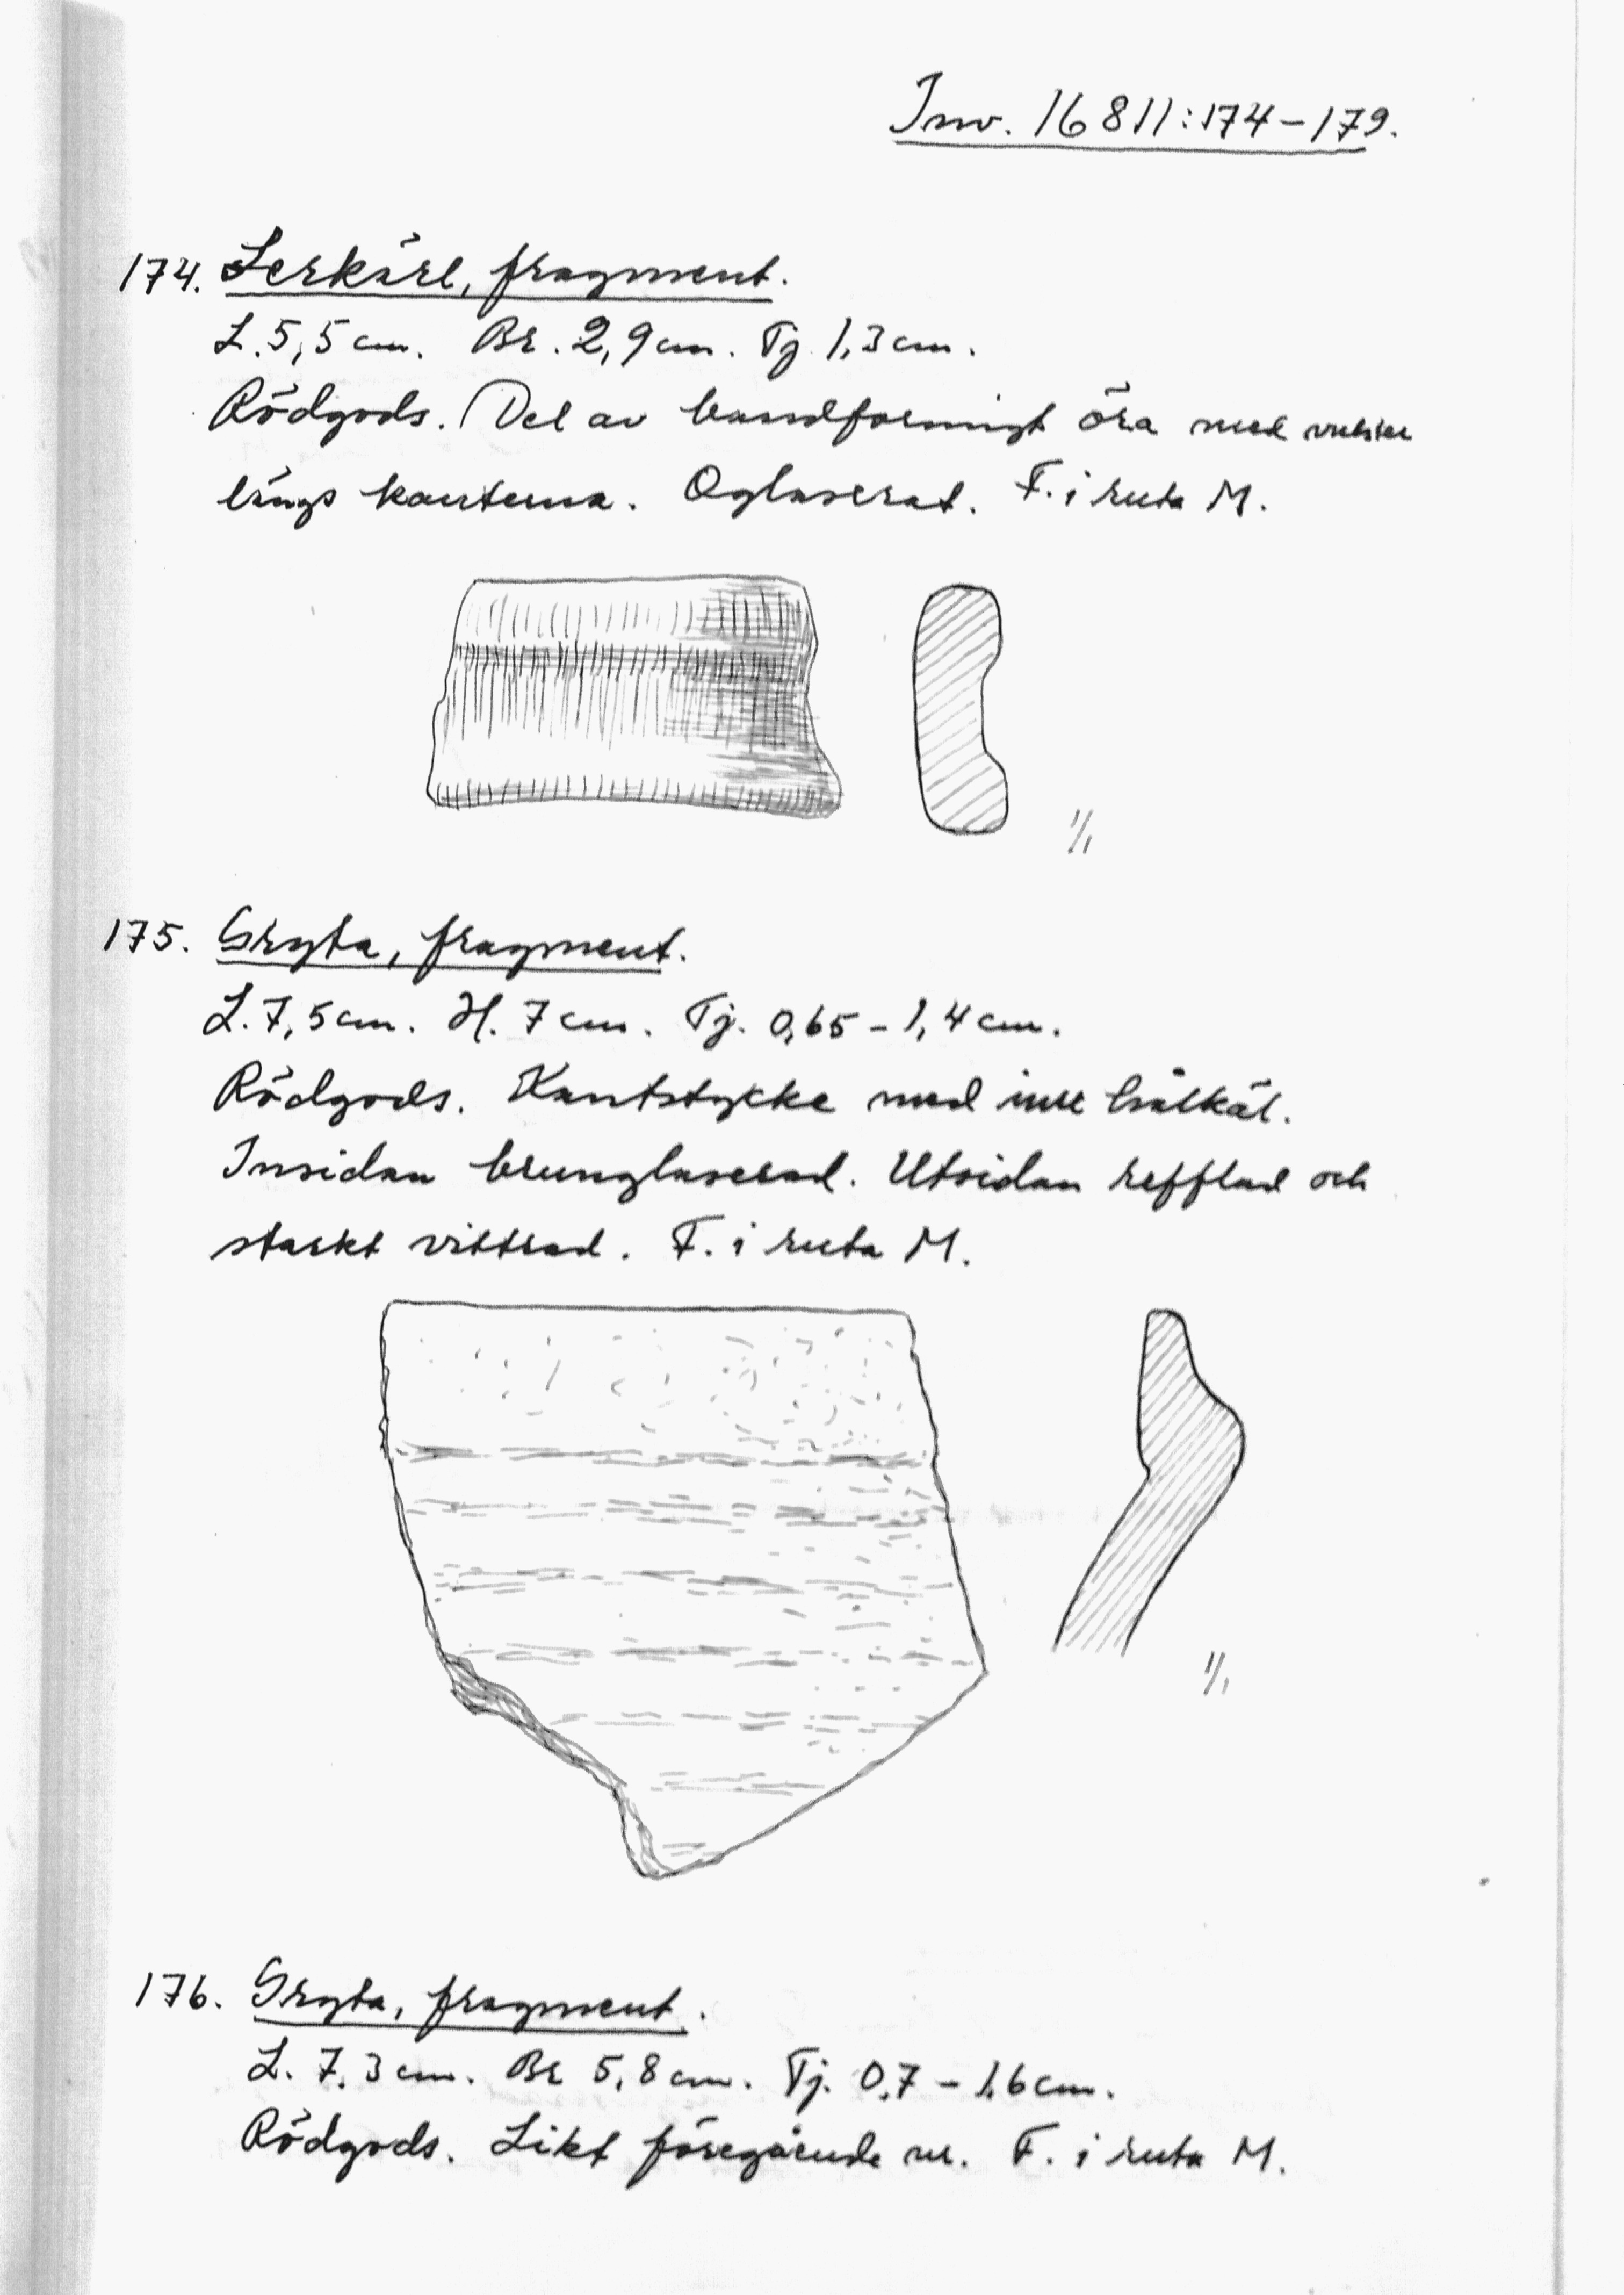 Inv. 16811:174-179.
174. Lerkärl, fragment.
L. 5,5 cm. Br. 2,9 cm. Tj 1,3 cm.
Rödgods. Del av bandformigt öra med vulster
längs kanterna. Oglaserat. F. i ruta M.
1/1
175. Gryta, fragment.
L. 7,5 cm. H. 7 cm. Tj. 0,65 - 1,4 cm.
Rödgods. Kantstycke med inre hålkäl.
Insidan brunglaserad. Utsidan refflad och
starkt vittrad. F. i ruta M.
1/1
176. Gryta, fragment.
L. 7,3 cm. Br 5,8 cm. Tj. 0,7 - 1,6 cm.
Rödgods. Likt föregående nr. F. i ruta M.